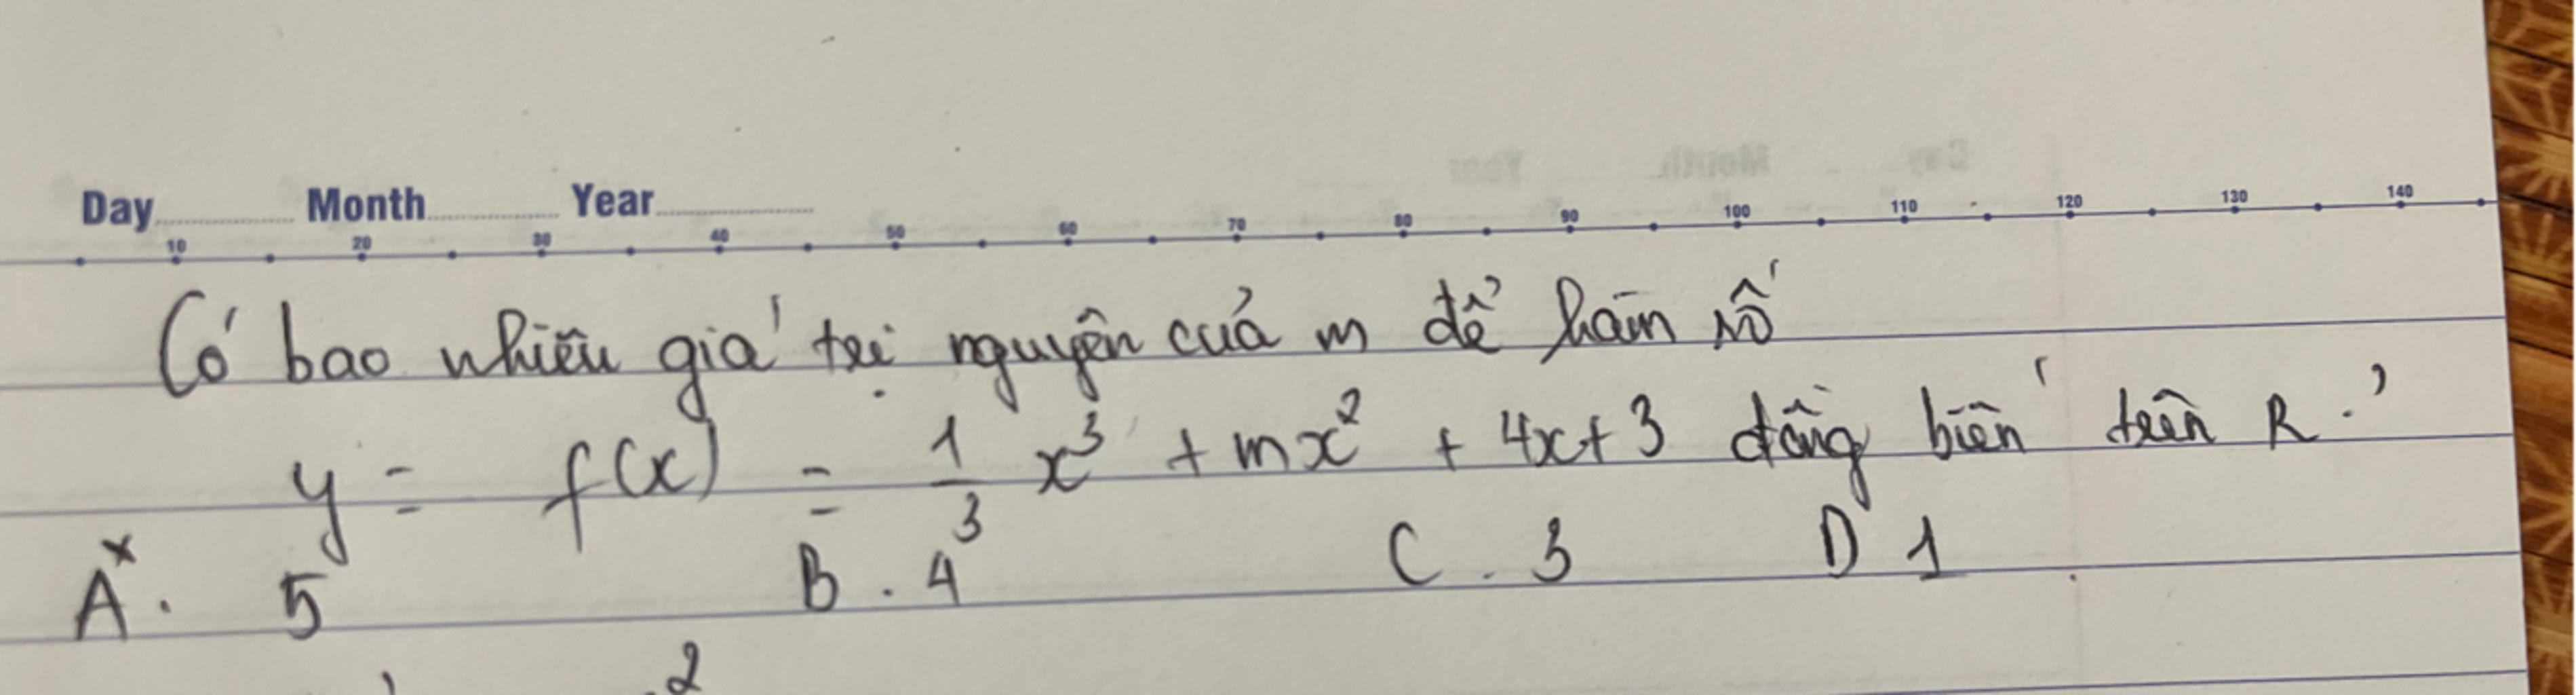 Day Month Year
10 20 30 40 50 60 70 80 90 100 110 120 130 140
Có bao nhiêu giá trị nguyên của m để hàm số
y = f(x) = 1/3 x³ + mx² + 4x+3 đồng biến trên R.
A. 5 B. 4 C. 3 D 1
2